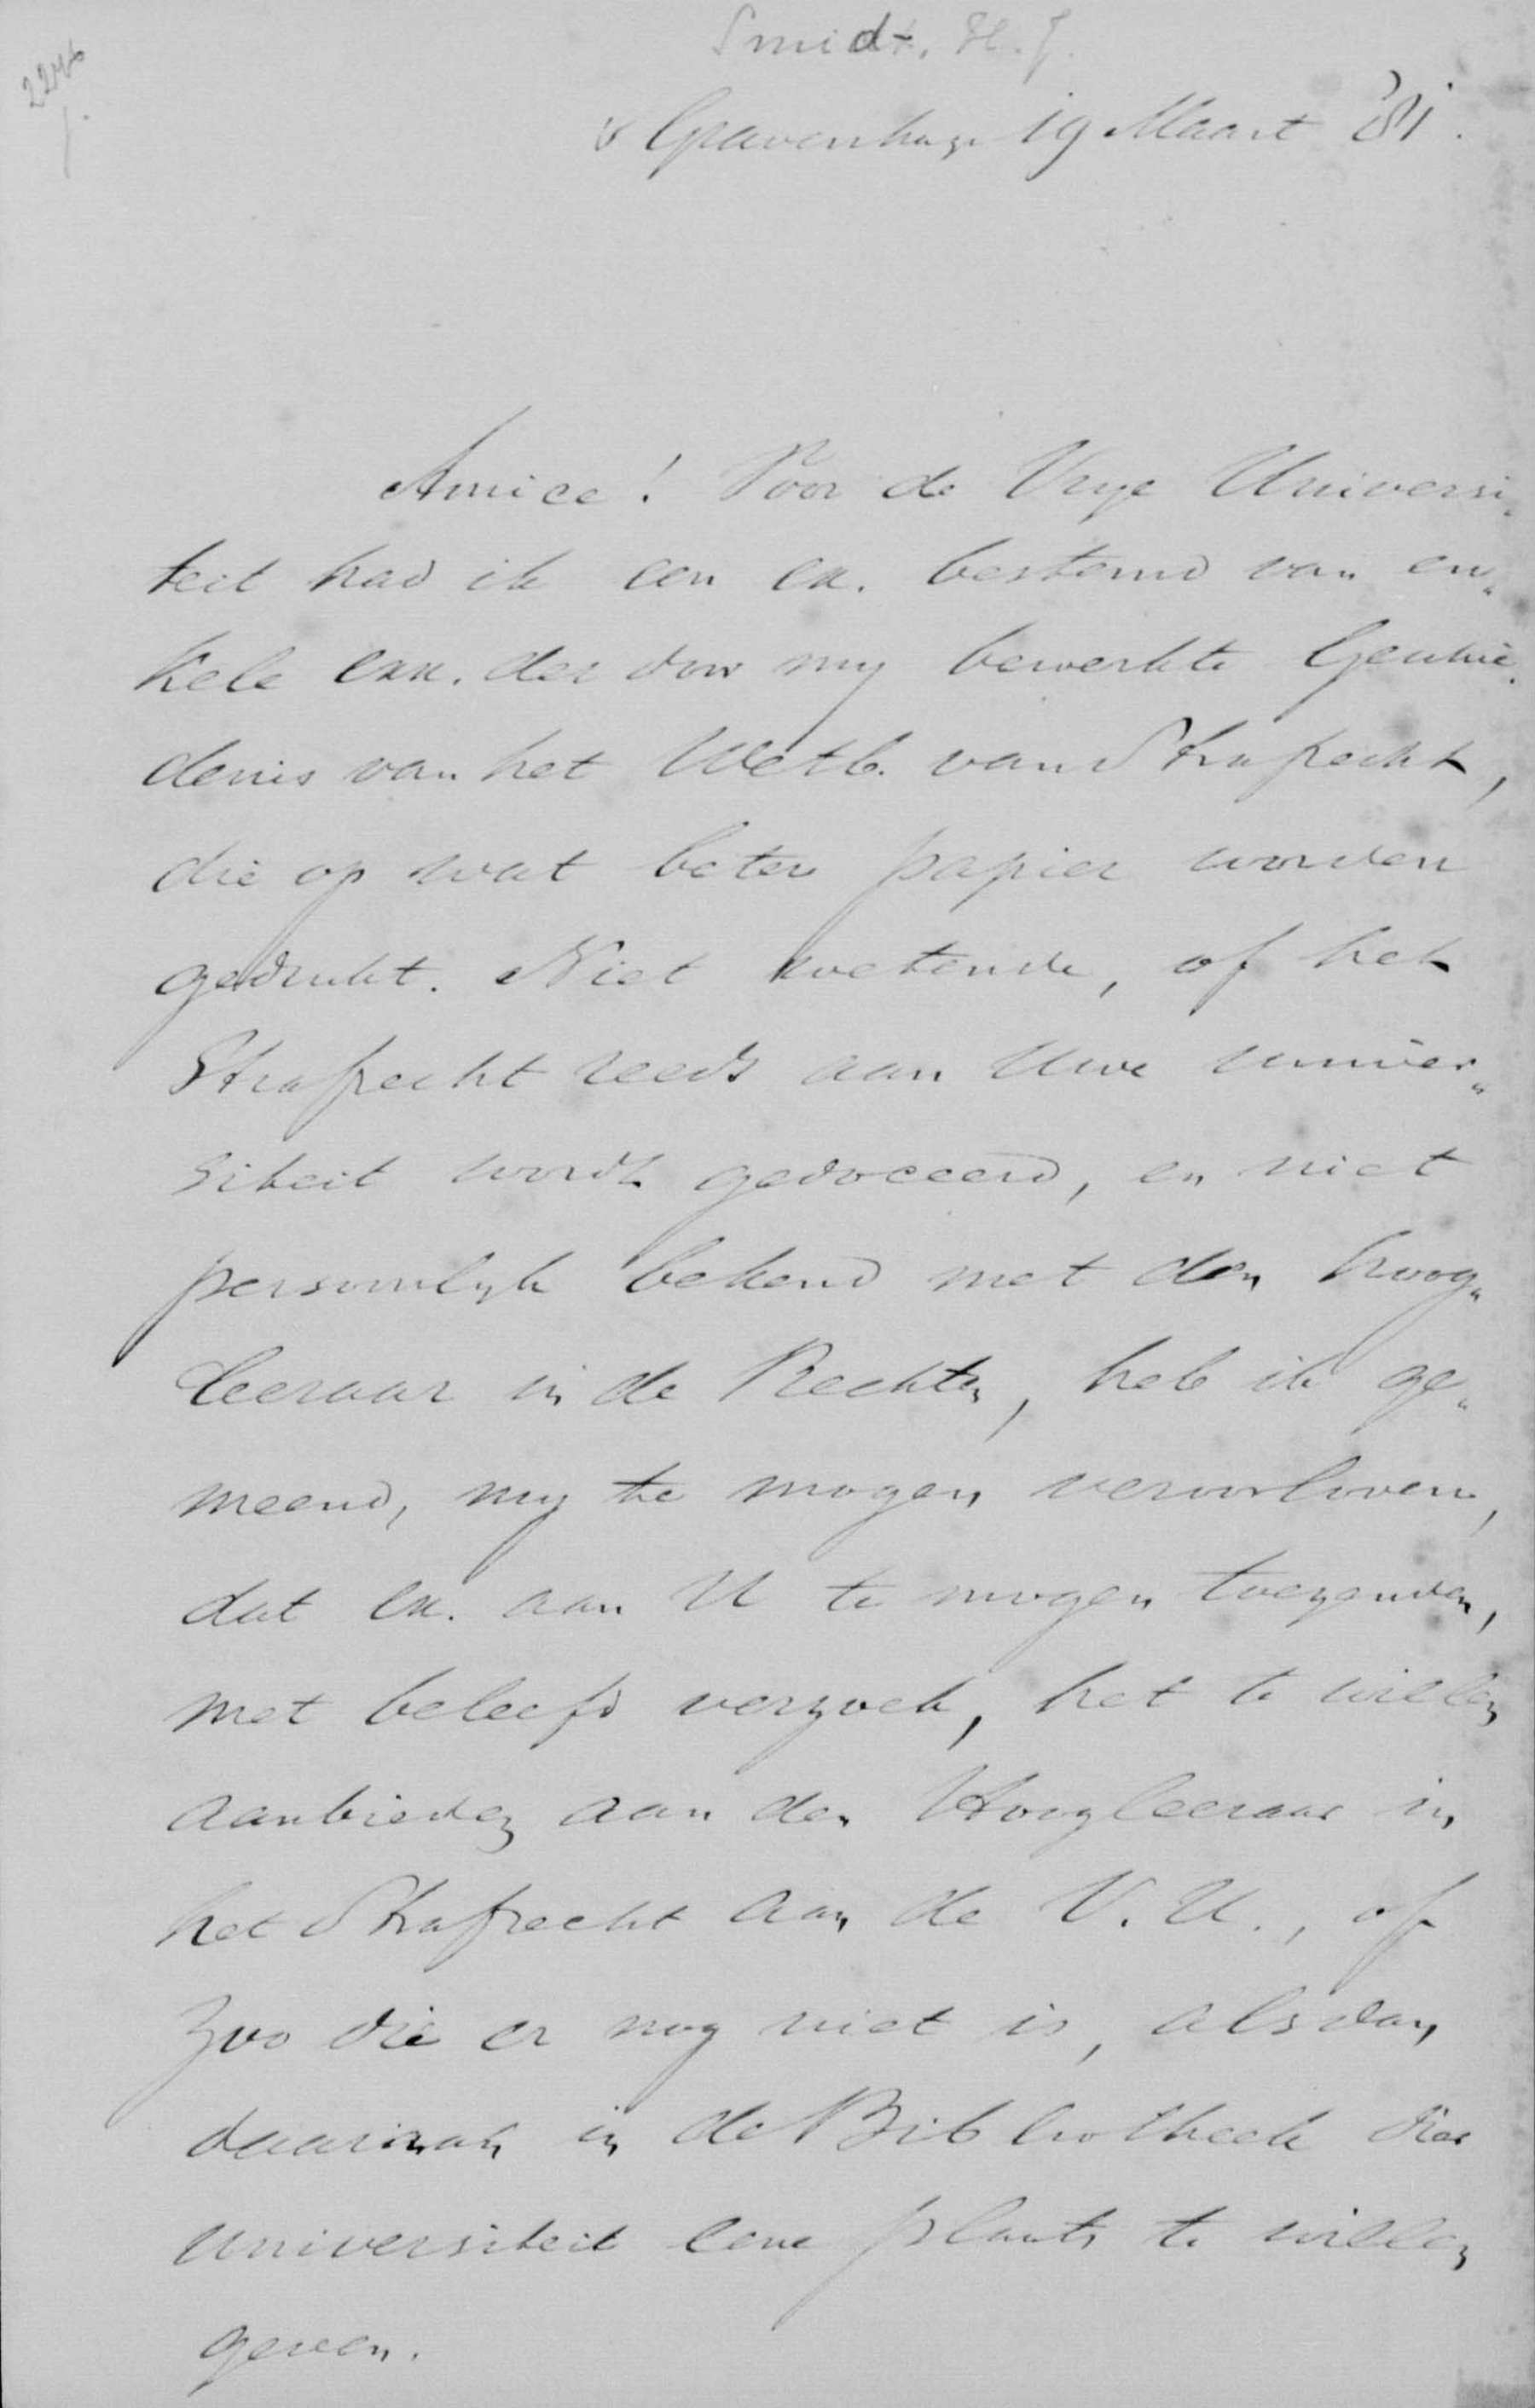 Smidt, H. J.
's Gravenhage 19 Maart '81.
Amice! Voor de Vrye Universi„
teit had ik een ex. bestemd van en„
kele exx. der door my bewerkte Geschie„
denis van het Wetb. van Strafrecht,
die op wat beter papier worden
gedrukt. Niet wetende, of het
Strafrecht reeds aan Uwe univer„
siteit wordt gedoceerd, en niet
persoonlyk bekend met den hoog„
leeraar in de Rechten, heb ik ge„
meend, my te mogen veroorloven,
dat ex. aan U te mogen toezenden,
met beleefd verzoek, het te willen
aanbieden aan den Hoogleeraar in
het Strafrecht aan de V. U., of
zoo die er nog niet is, alsdan
daaraan in de Bibliotheek dier
universiteit eene plaats te willen
geven.